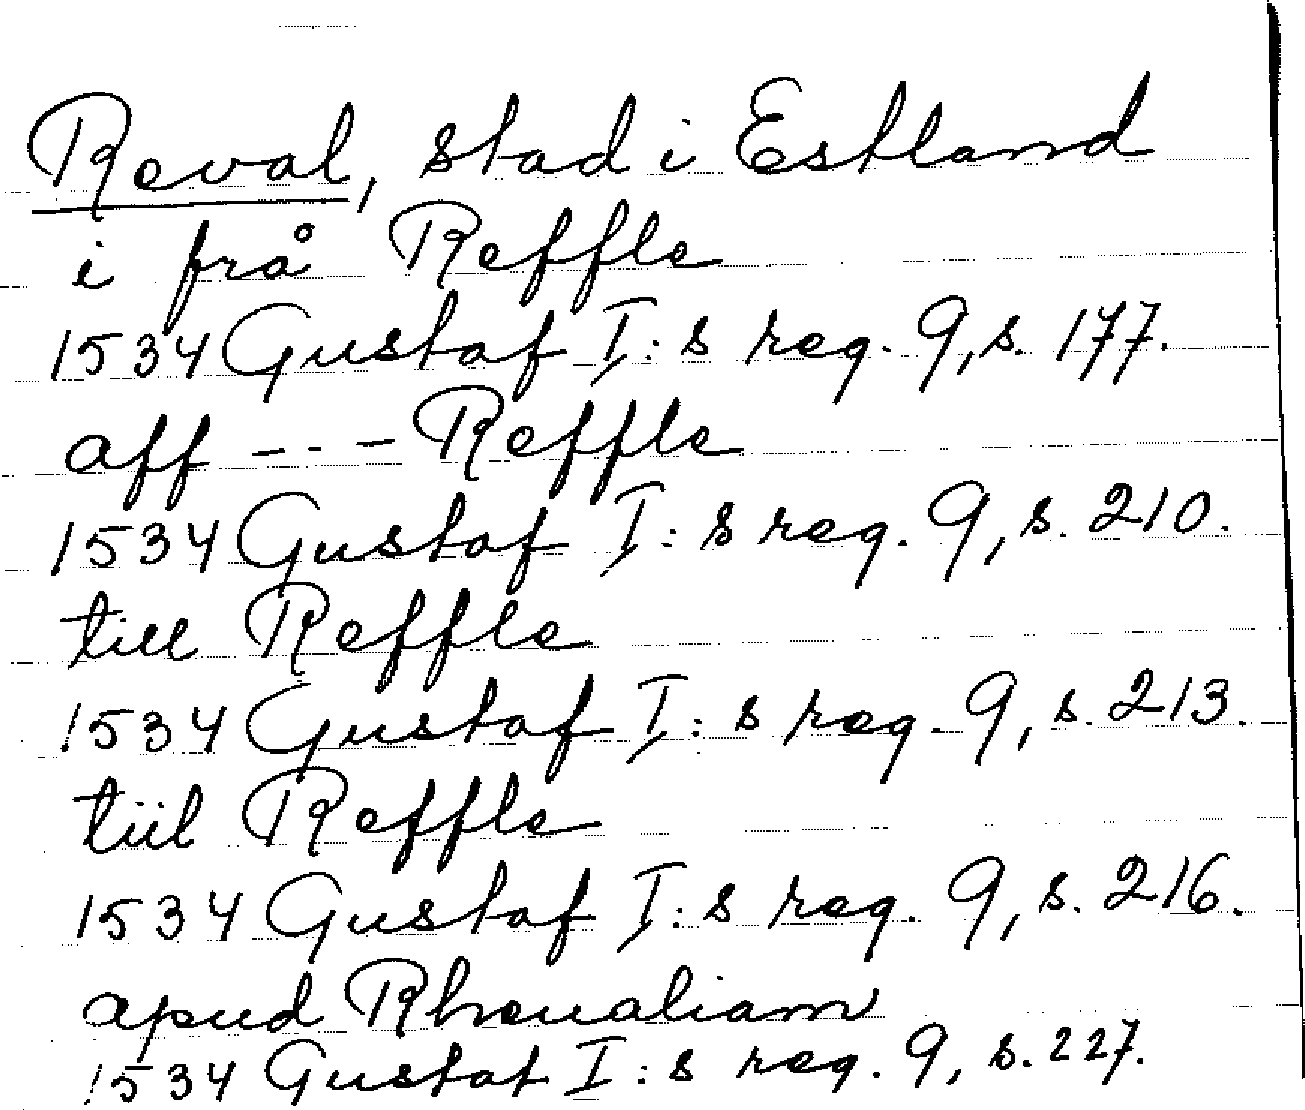 Reval, stad i Estland
i frå Reffle
1534 Gustaf I:s reg. 9, s. 177.
aff --- Reffle
1534 Gustaf I:s reg. 9, s. 210.
till Reffle
1534 Gustaf I:s reg. 9, s. 213.
tiil Reffle
1534 Gustaf I:s reg. 9, s. 216.
apud Rheualiam
1534 Gustaf I:s reg. 9, s. 227.